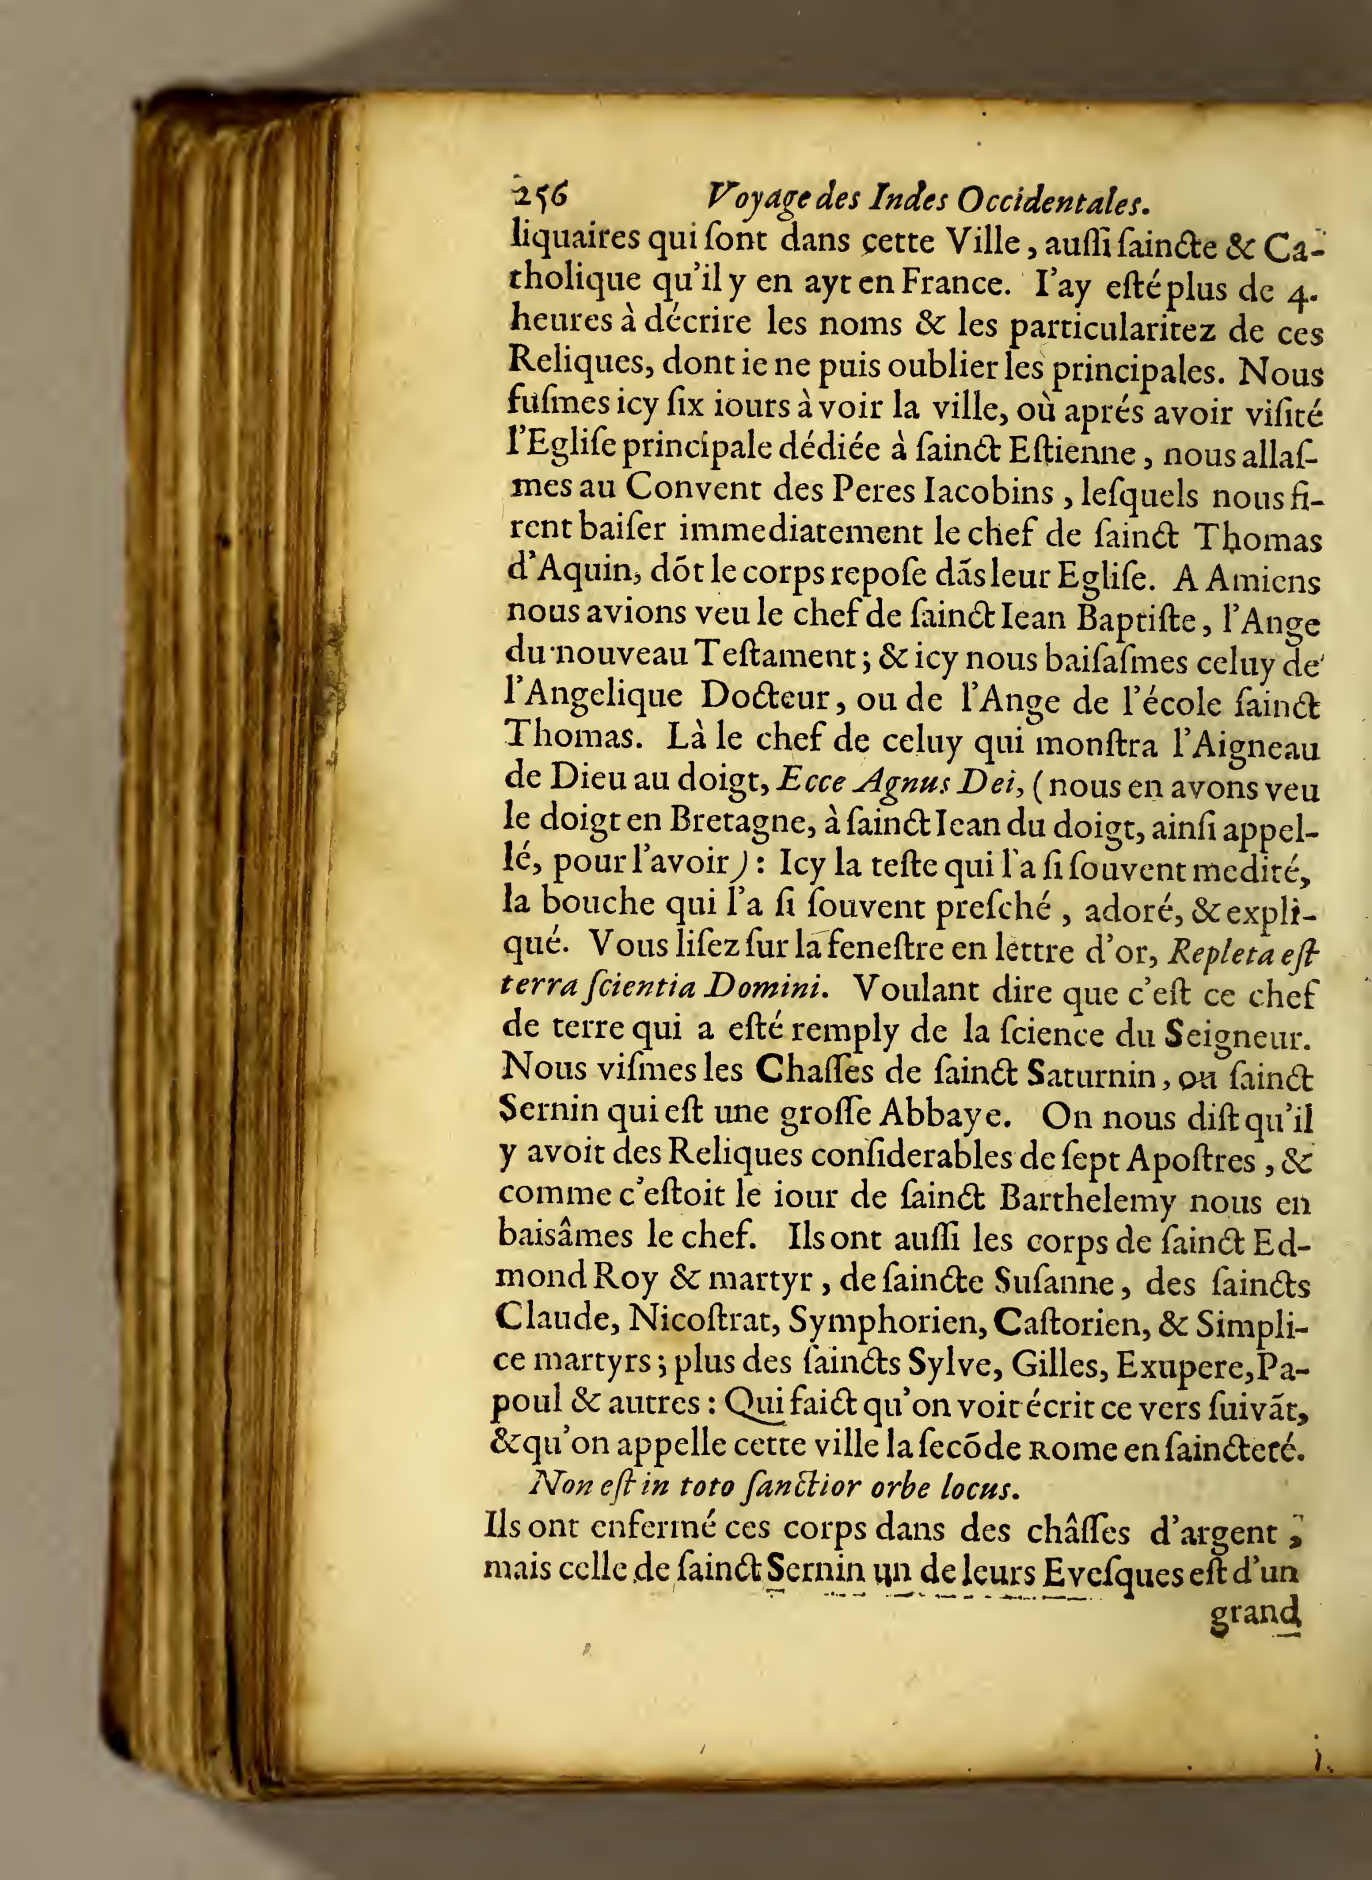 256 Voyage des Indes Occidentales.
liquaires qui ſont dans cette Ville, auſſi ſaincte & Ca-
tholique qu'il y en ayt en France. I'ay eſté plus de 4.
heures à décrire les noms & les particularitez de ces
Reliques, dont ie ne puis oublier les principales. Nous
fuſmes icy ſix iours à voir la ville, où aprés avoir viſité
l'Egliſe principale dédiée à ſainct Eſtienne, nous allaſ-
mes au Convent des Peres Iacobins, leſquels nous fi-
rent baiſer immediatement le chef de ſainct Thomas
d'Aquin, dõt le corps repoſe dãs leur Egliſe. A Amiens
nous avions veu le chef de ſainct Iean Baptiſte, l'Ange
du nouveau Teſtament; & icy nous baiſaſmes celuy de
l'Angelique Docteur, ou de l'Ange de l'école ſainct
Thomas. Là le chef de celuy qui monſtra l'Aigneau
de Dieu au doigt, Ecce Agnus Dei, (nous en avons veu
le doigt en Bretagne, à ſainct Iean du doigt, ainſi appel-
lé, pour l'avoir): Icy la teſte qui l'a ſi ſouvent medité,
la bouche qui l'a ſi ſouvent preſché, adoré, & expli-
qué. Vous liſez ſur la feneſtre en lettre d'or, Repleta eſt
terra ſcientia Domini. Voulant dire que c'eſt ce chef
de terre qui a eſté remply de la ſcience du Seigneur.
Nous viſmes les Chaſſes de ſainct Saturnin, ou ſainct
Sernin qui eſt une groſſe Abbaye. On nous diſt qu'il
y avoit des Reliques conſiderables de ſept Apoſtres, &
comme c'eſtoit le iour de ſainct Barthelemy nous en
baisâmes le chef. Ils ont auſſi les corps de ſainct Ed-
mond Roy & martyr, de ſaincte Suſanne, des ſaincts
Claude, Nicoſtrat, Symphorien, Caſtorien, & Simpli-
ce martyrs; plus des ſaincts Sylve, Gilles, Exupere, Pa-
poul & autres: Qui faict qu'on voit écrit ce vers ſuivãt,
& qu'on appelle cette ville la ſecõde Rome en ſaincteté.
Non eſt in toto ſanctior orbe locus.
Ils ont enfermé ces corps dans des châſſes d'argent,
mais celle de ſainct Sernin un de leurs Eveſques eſt d'un
grand